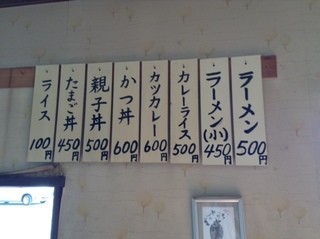 ラーメン 500円
ラーメン(小) 450円
カレーライス 500円
カツカレー 600円
かつ丼 600円
親子丼 500円
たまご丼 450円
ライス 100円